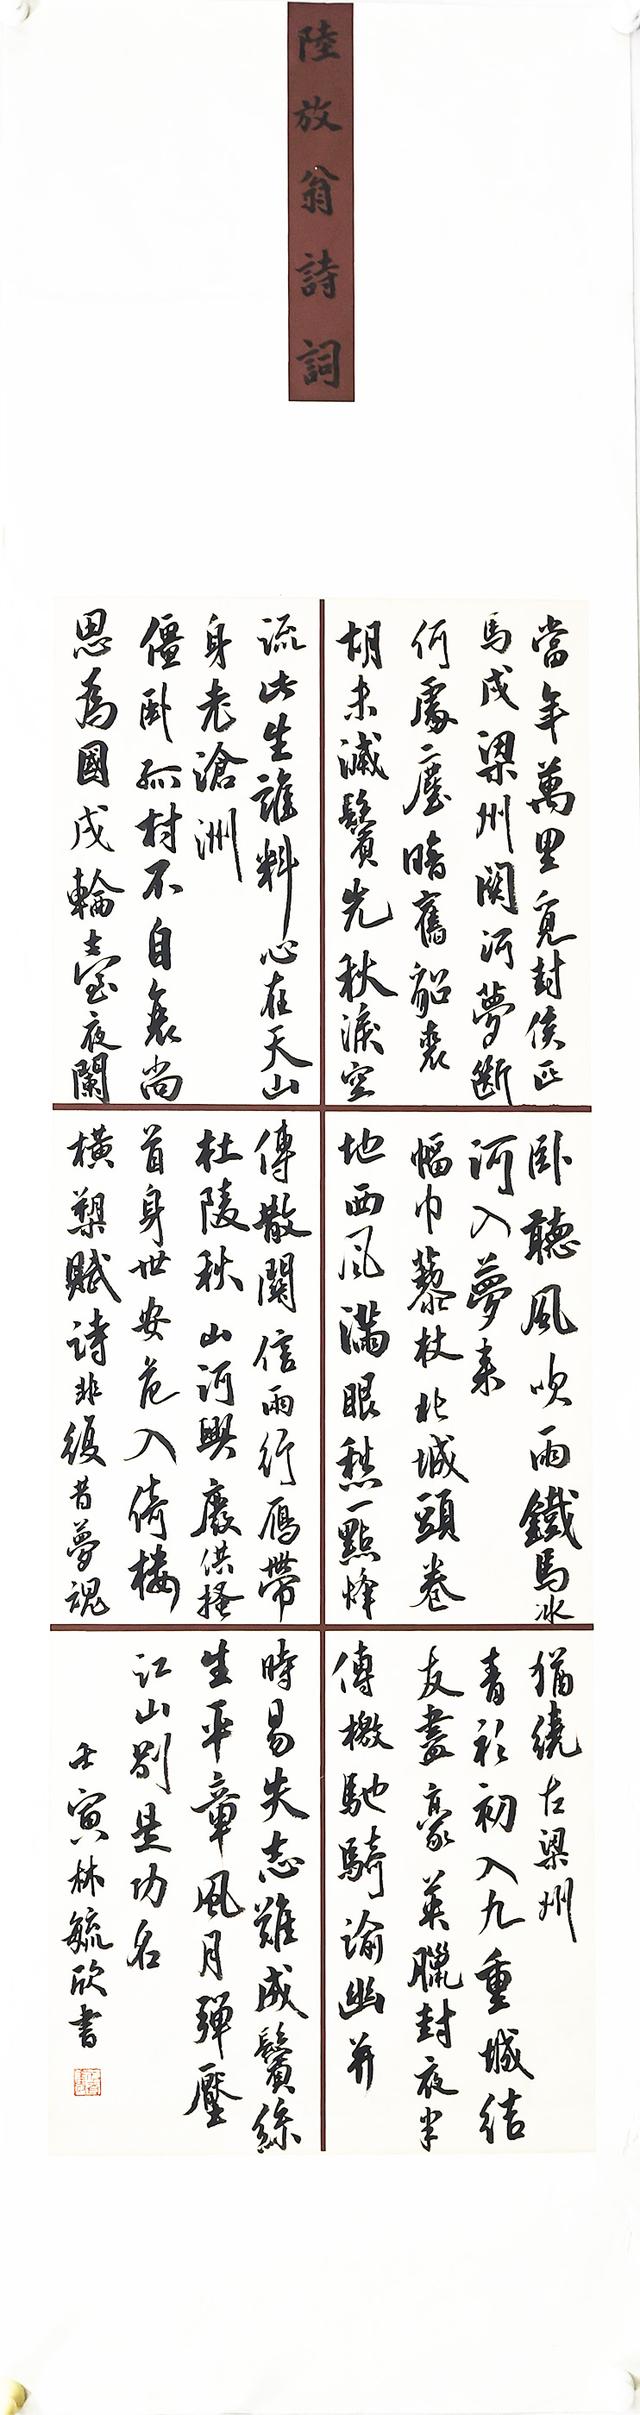 陸放翁詩詞
當年萬里覓封侯匹
馬戍梁州關河夢斷
何處塵暗舊貂裘
胡未滅鬢先秋淚空
流此生誰料心在天山
身老滄洲
僵卧孤村不自哀尚
思為國戍輪臺夜闌
卧聽風吹雨鐵馬冰
河入夢来
幅巾藜杖北城頭卷
地西風滿眼愁一點烽
傳散關信兩行雁帶
杜陵秋山河興廢供搔
首身世安危入倚樓
橫槊賦詩非復昔夢魂
猶繞古梁州
青衫初入九重城結
友盡豪英臘封夜半
傳檄馳騎諭幽并
時易失志難成鬢絲
生平章風月彈壓
江山別是功名
壬寅林毓欣書